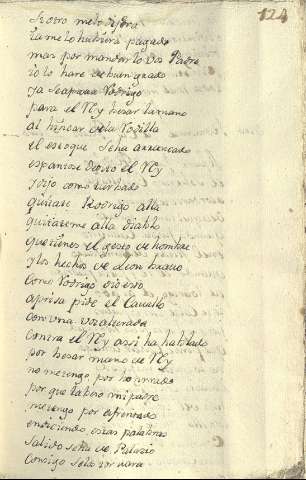 124
Si otro me lo dijera
ya me lo hubiera pagado
mas por mandarlo Vos Padre
io lo hare de buen grado
ya se apaua Rodrigo
para el Rey besar la mano
al hincar de la Rodilla
el estoque se ha arrancado
espantose de esto el Rey
y dijo como turbado
quitate Rodrigo alla
quitateme alla Diablo
que tienes el gesto de hombre
y los hechos de Leon brauo
Como Rodrigo oio esto
aprisa pide el Cauallo
con vna voz alterada
contra el Rey assi ha hablado
por besar mano de Rey
no me tengo por honrrado
por que la beso mi padre
me tengo por afrentado
en diciendo estas palabras
salido se ha de Palacio
consigo se los tornara